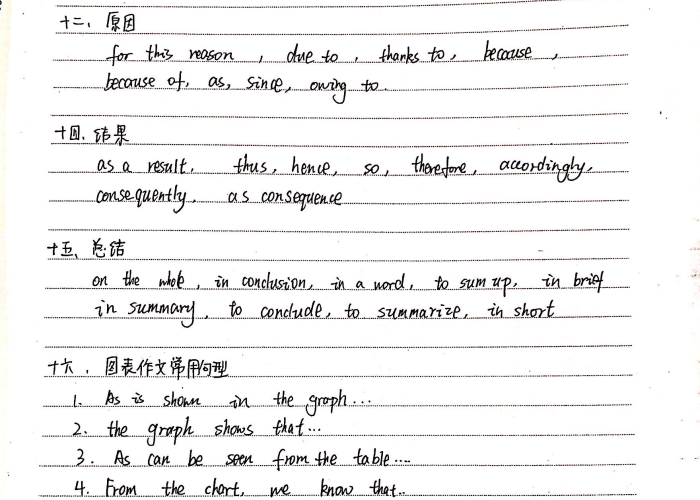 十二、原因
for this reason, due to, thanks to, because,
because of, as, since, owing to.
十四、结果
as a result, thus, hence, so, therefore, accordingly,
consequently, as consequence
十五、总结
on the whole, in conclusion, in a word, to sum up, in brief
in summary, to conclude, to summarize, in short
十六、图表作文常用句型
1. As is shown in the graph...
2. the graph shows that...
3. As can be seen from the table....
4. From the chart, we know that..